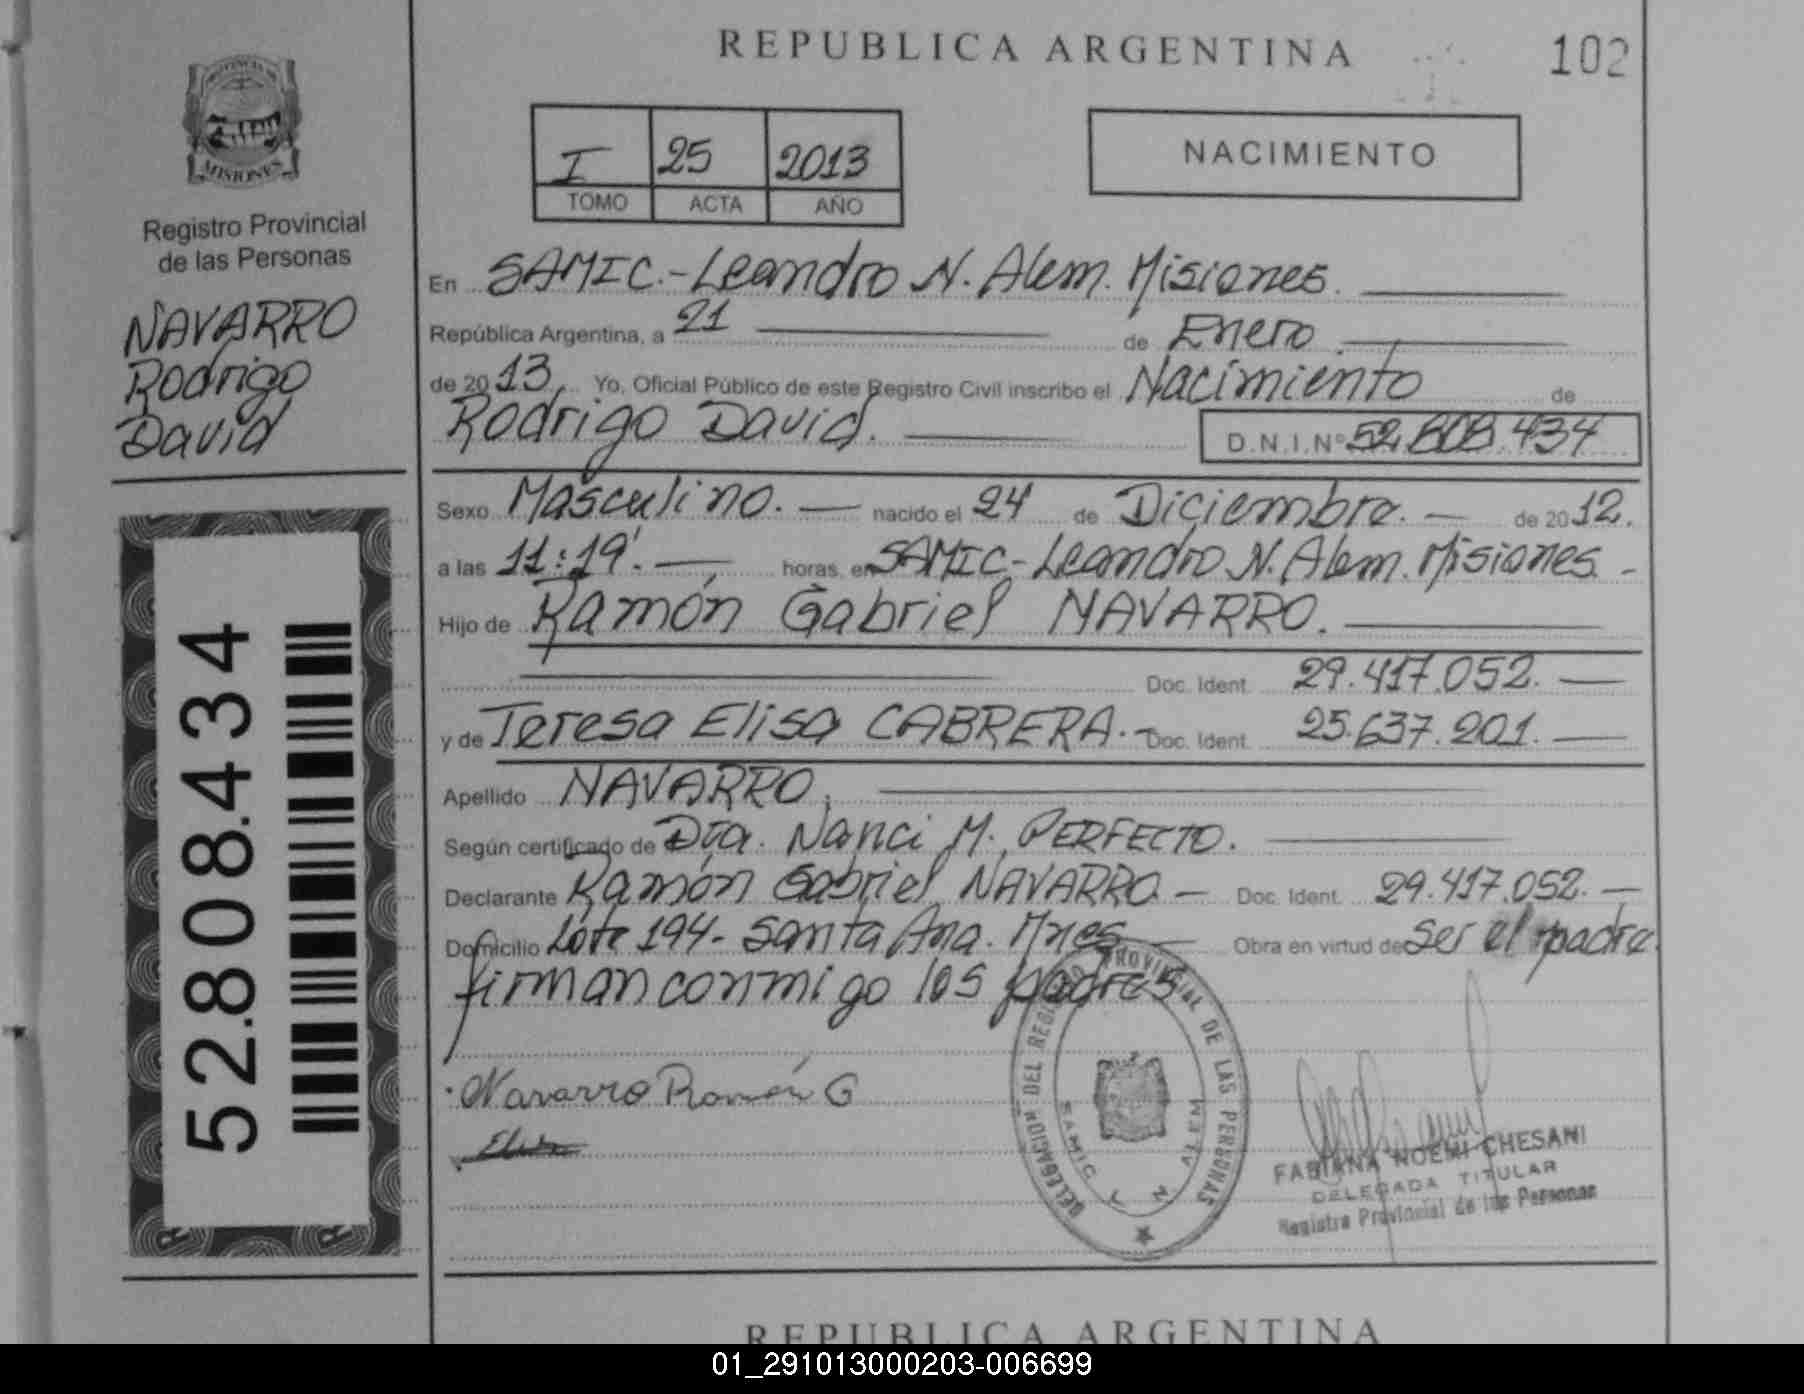 REPUBLICA ARGENTINA
102
MISIONES
Registro Provincial
de las Personas
NAVARRO
Rodrigo
David
52.808.434
I 25 2013
TOMO ACTA AÑO
NACIMIENTO
En SAMIC.-Leandro N. Alem. Misiones.
República Argentina, a 21 de Enero.
de 2013, Yo, Oficial Público de este Registro Civil inscribo el Nacimiento de
Rodrigo David. D.N.I.Nº 52.808.434
Sexo Masculino. — nacido el 24 de Diciembre. — de 2012.
a las 11:19'. — horas, en SAMIC-Leandro N. Alem. Misiones. -
Hijo de Ramón Gabriel NAVARRO.
Doc. Ident. 29.417.052. —
y de Teresa Elisa CABRERA.- Doc. Ident. 25.637.201. —
Apellido NAVARRO.
Según certificado de Dra. Nanci M. PERFECTO.
Declarante Ramón Gabriel NAVARRO — Doc. Ident. 29.417.052. —
Domicilio Lote 194- Santa Ana. Mnes — Obra en virtud de Ser el padre.
firman conmigo los padres
Navarro Ramón G
DELEGACION DEL REGISTRO PROVINCIAL DE LAS PERSONAS
SAMIC L N ALEM
FABIANA NOEMI CHESANI
DELEGADA TITULAR
Registro Provincial de las Personas
REPUBLICA ARGENTINA
01_291013000203-006699